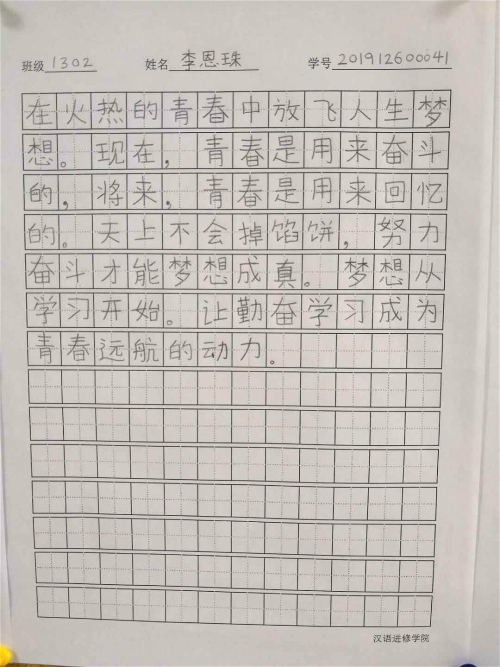 班级 1302 姓名 李恩珠 学号 201912600041
在火热的青春中放飞人生梦
想。现在，青春是用来奋斗
的，将来，青春是用来回忆
的。天上不会掉馅饼，努力
奋斗才能梦想成真。梦想从
学习开始。让勤奋学习成为
青春远航的动力。
汉语进修学院